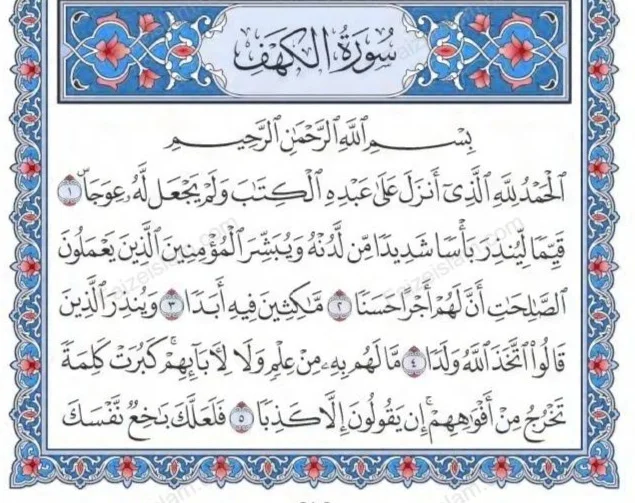 سُورَةُ الكَهْفِ
بِسْمِ ٱللَّهِ ٱلرَّحْمَٰنِ ٱلرَّحِيمِ
ٱلْحَمْدُ لِلَّهِ ٱلَّذِىٓ أَنزَلَ عَلَىٰ عَبْدِهِ ٱلْكِتَٰبَ وَلَمْ يَجْعَل لَّهُۥ عِوَجَاۜ ١
قَيِّمًا لِّيُنذِرَ بَأْسًا شَدِيدًا مِّن لَّدُنْهُ وَيُبَشِّرَ ٱلْمُؤْمِنِينَ ٱلَّذِينَ يَعْمَلُونَ
ٱلصَّٰلِحَٰتِ أَنَّ لَهُمْ أَجْرًا حَسَنًا ٢ مَّٰكِثِينَ فِيهِ أَبَدًا ٣ وَيُنذِرَ ٱلَّذِينَ
قَالُوا۟ ٱتَّخَذَ ٱللَّهُ وَلَدًا ٤ مَّا لَهُم بِهِۦ مِنْ عِلْمٍ وَلَا لِـَٔابَآئِهِمْ ۚ كَبُرَتْ كَلِمَةً
تَخْرُجُ مِنْ أَفْوَٰهِهِمْ ۚ إِن يَقُولُونَ إِلَّا كَذِبًا ٥ فَلَعَلَّكَ بَٰخِعٌ نَّفْسَكَ